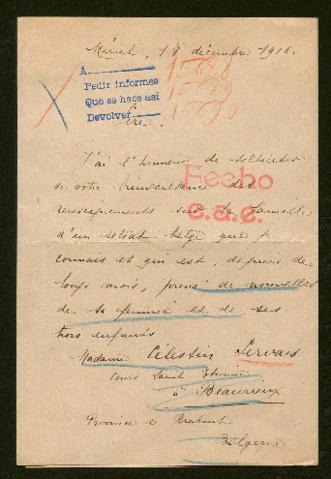 Mériel, 18 décembre 1916.
A
Pedir informes
Que se hace así
Devolver
15688
1569
Sire,
J'ai l'honneur de solliciter
de votre bienveillance des
Fecho
renseignements sur la famille
e.a.e.
d'un soldat belge que je
connais et qui est, depuis de
longs mois, privé de nouvelles
de sa femme et de ses
trois enfants
Madame Célestin Servais
cour Saint
à Beaurieux
Province de Brabant
Belgique